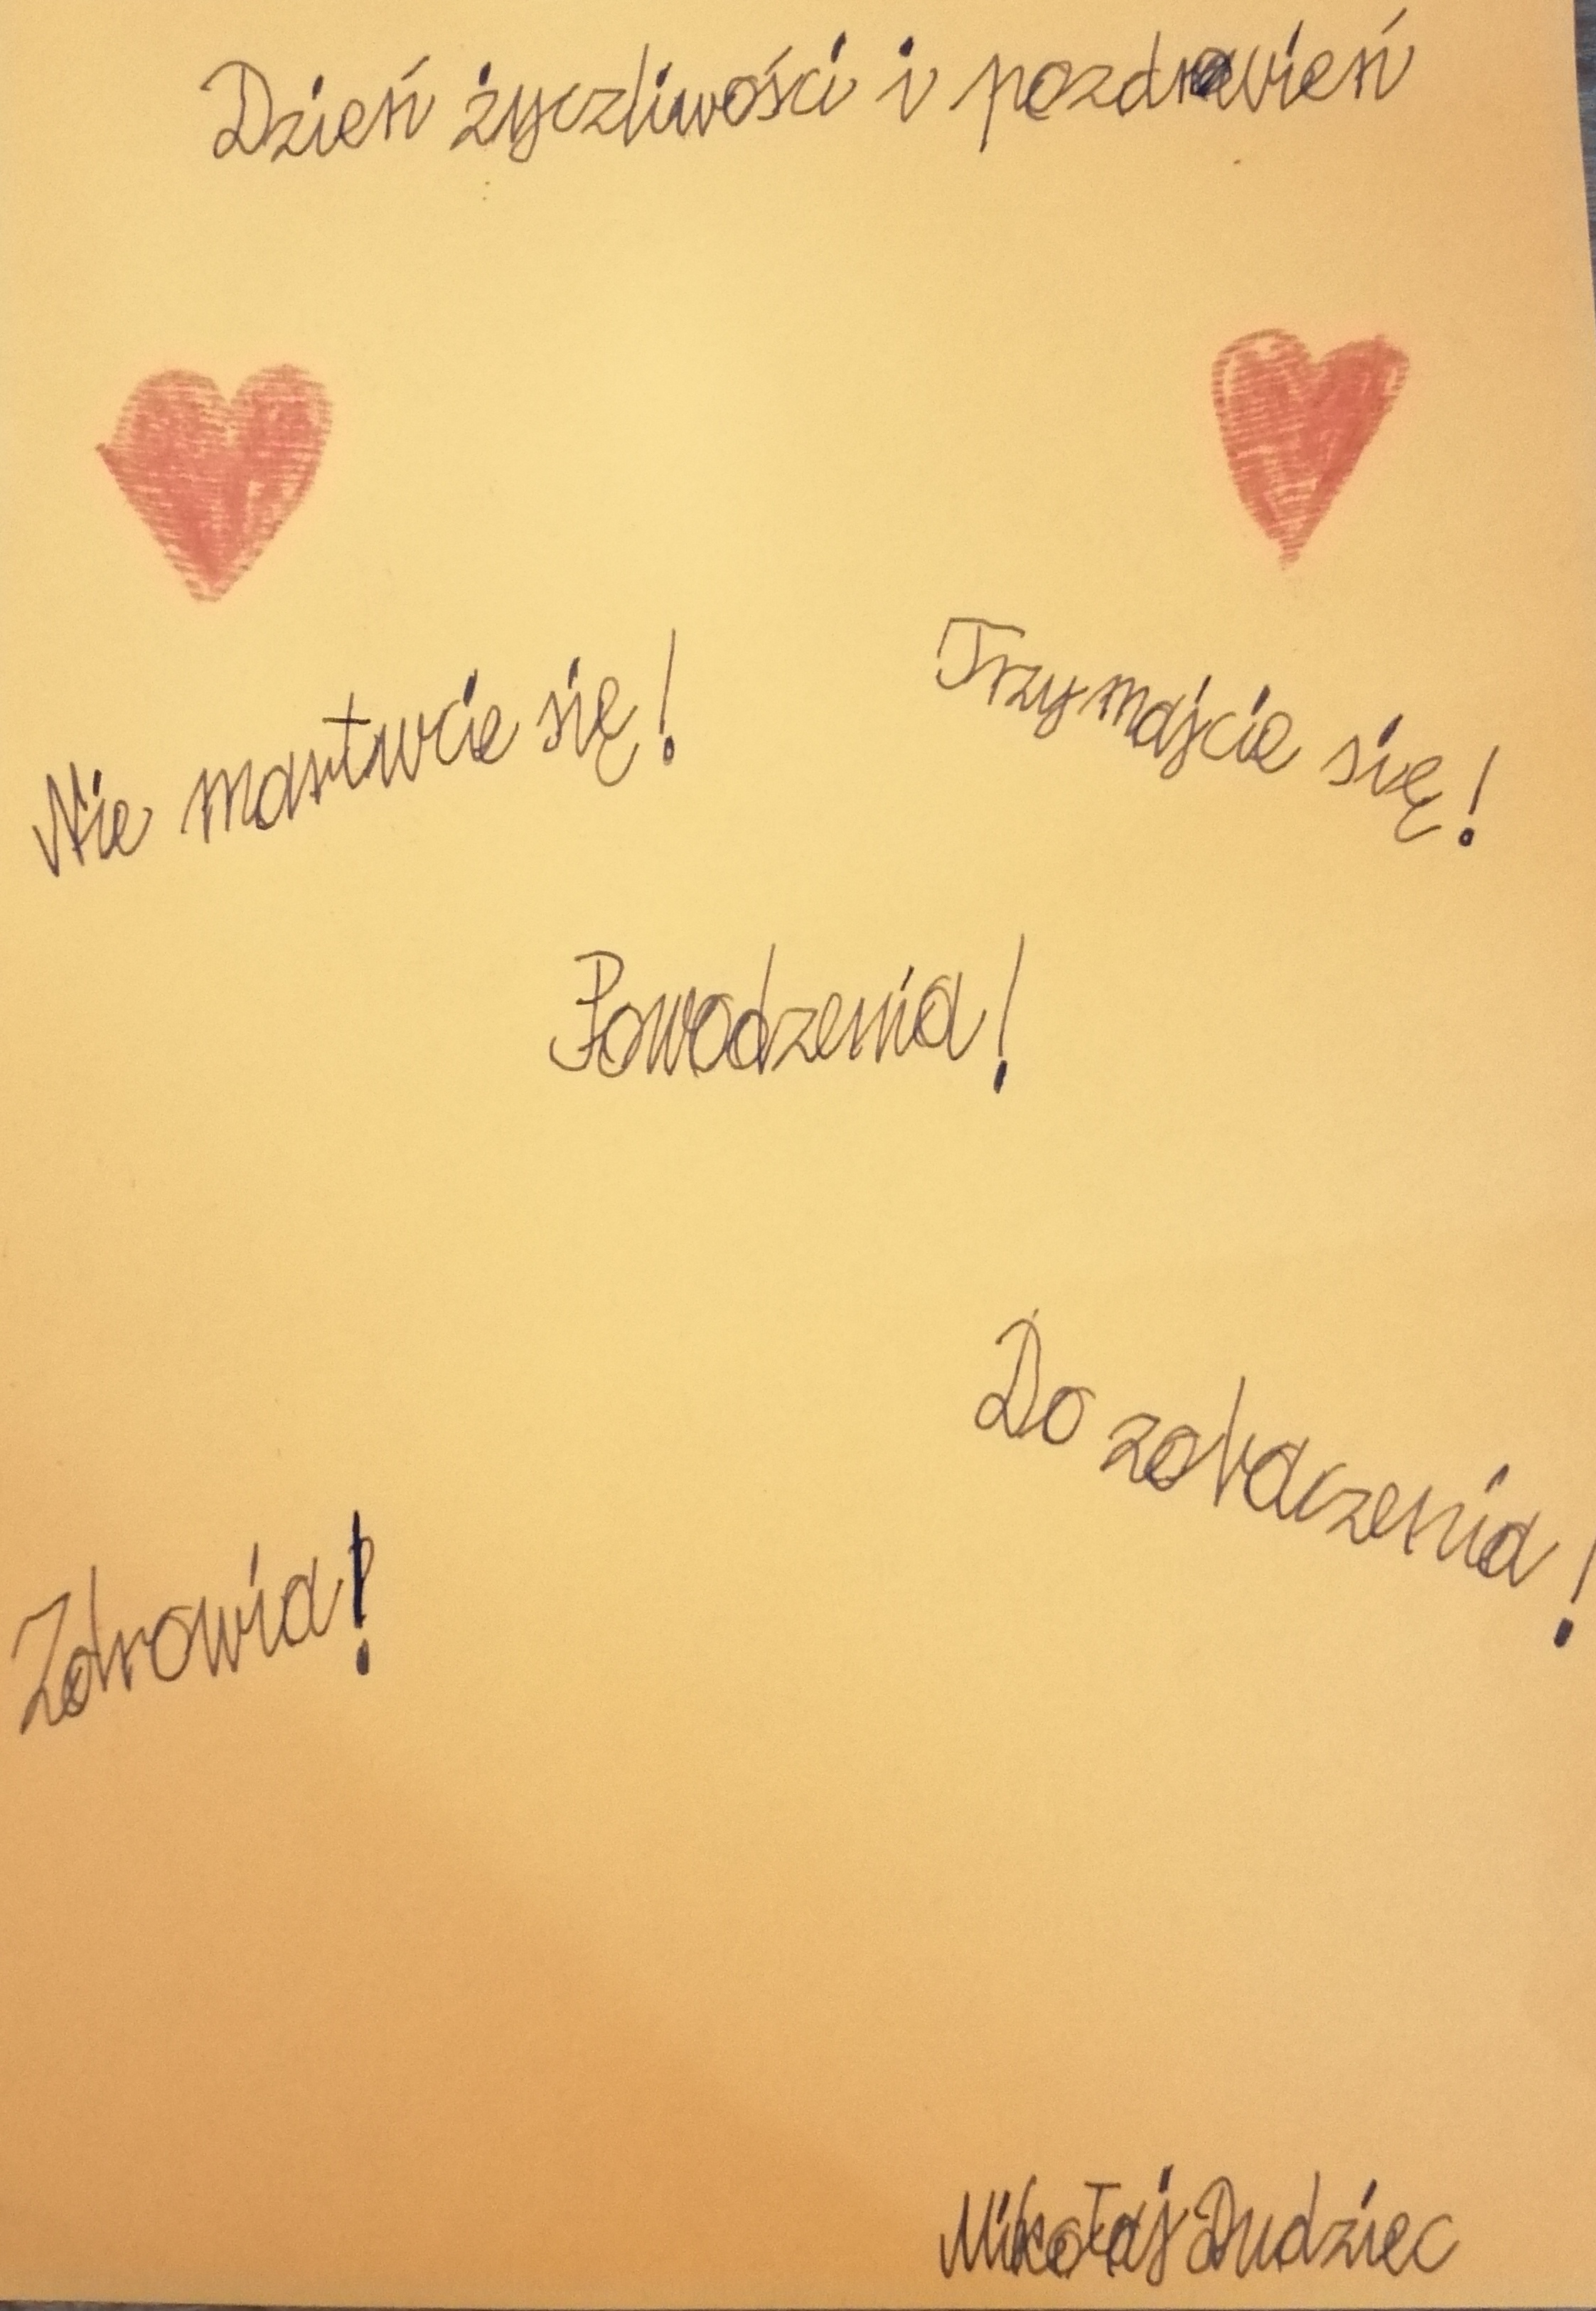 Dzień życzliwości i pozdrawień
Nie martwcie się!
Trzymajcie się!
Powodzenia!
Do zobaczenia!
Zdrowia!
Mikołaj Dudziec